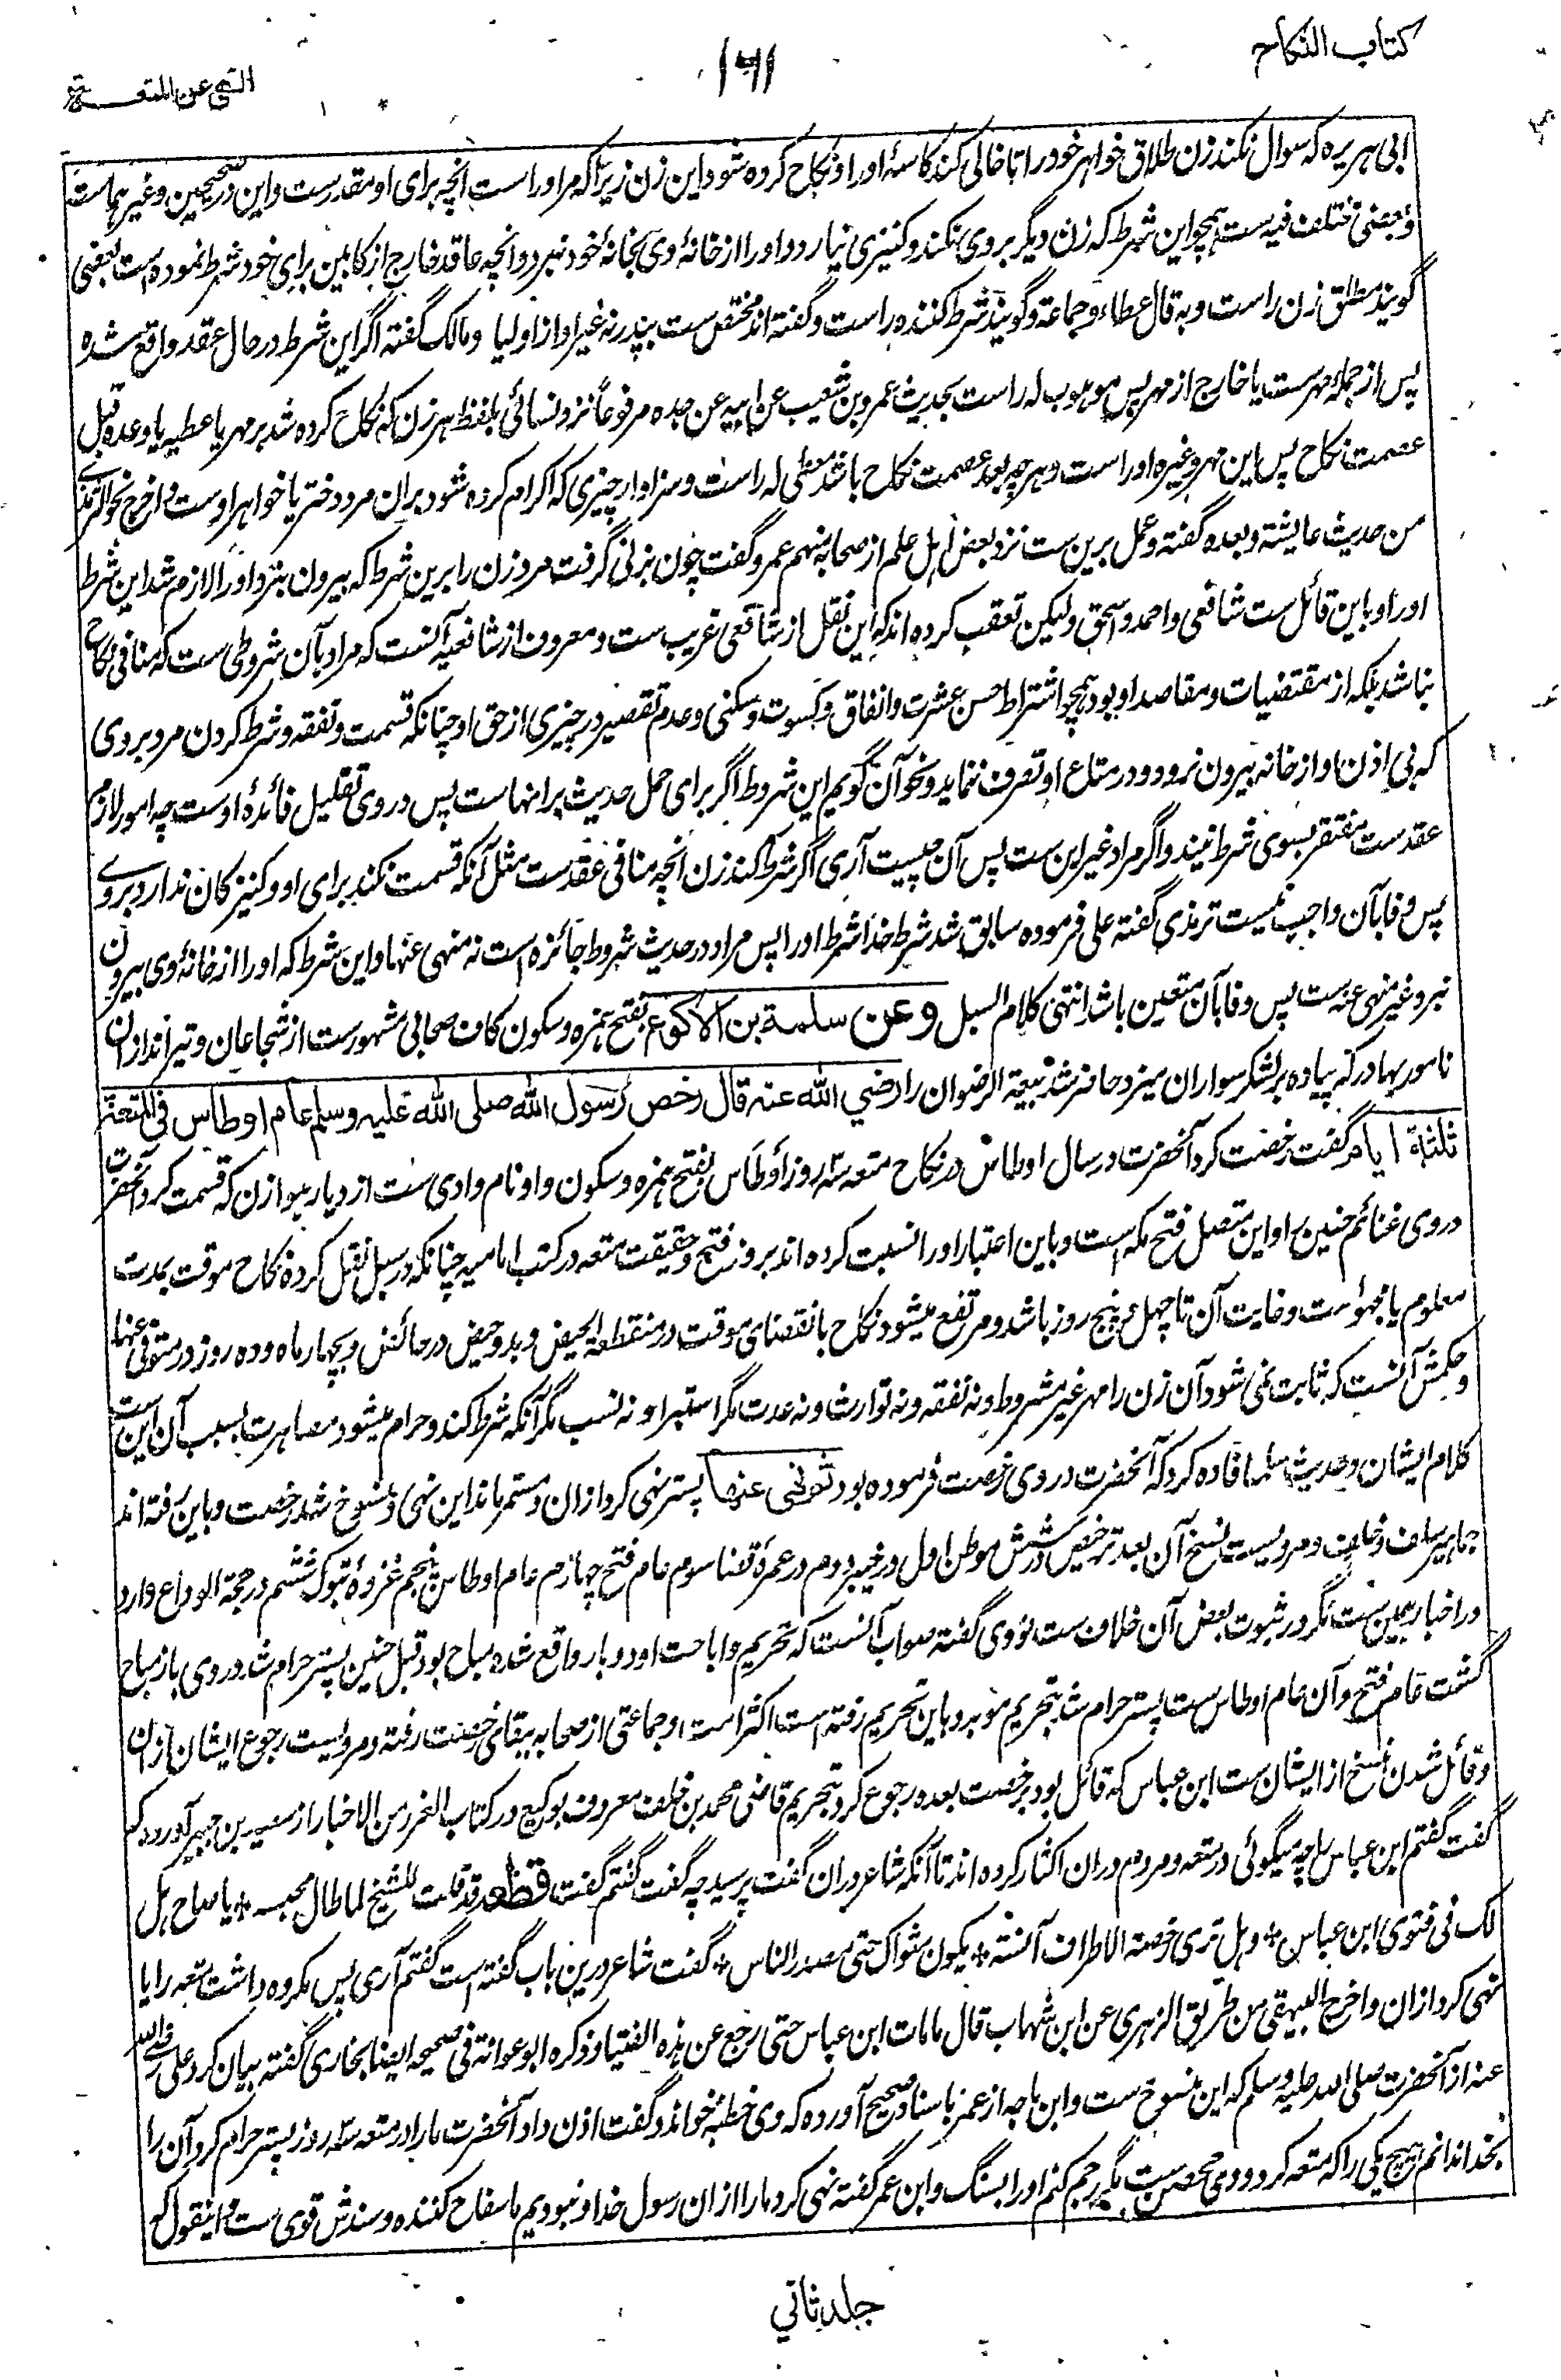 كتاب النكاح
١٦١
النهي عن المتعة
ابی هریره که سوال نکند زن طلاق خواهر خود را تا خالی کند کاسهٔ او را و نکاح کرده شود این زن زیرا که مر او راست انچه برای او مقدرست و این در صحیحین و غیر هماست
و بعضی مختلف فیه ست همچو این شرط که زن دیگر بر وی نکند و کنیزی نیارد و او را از خانهٔ وی بخانهٔ خود نبرد و انچه عاقد خارج از کابین برای خود شرط نموده است بعضی
گویند مطلق زن راست و به قال عطاء و جماعة و گویند شرط کننده راست و گفته اند مختص ست بپدر نه غیر او از اولیا و مالک گفته اگر این شرط در حال عقد واقع شده
پس از جمله مهرست یا خارج از مهر پس موهوب له راست بحدیث عمرو بن شعیب عن ابیه عن جده مرفوعاً نزد نسائی بلفظ هر زن که نکاح کرده شد بر مهر یا عطیه یا وعده قبل
عصمت نکاح پس این مهر و غیره او راست و هر چه بعد عصمت نکاح باشد معطی له راست و سزاوار چیزی که اکرام کرده شود بران مرد دختر یا خواهر اوست و اخرج نحوه الترمذی
من حدیث عایشة و بعده گفته و عمل برین ست نزد بعض اهل علم از صحابه منهم عمر و گفت چون بزنی گرفت مرد زن را برین شرط که بیرون نبرد او را لازم شد این شرط
او را و باین قائل ست شافعی و احمد و اسحق ولیکن تعقب کرده اند که این نقل از شافعی غریب ست و معروف از شافعیه آنست که مراد بآن شروطی ست که منافی نکاح
نباشد بلکه از مقتضیات و مقاصد او بود همچو اشتراط حسن عشرت و انفاق و کسوت و سکنی و عدم تقصیر در چیزی از حق او چنانکه قسمت و نفقه و شرط کردن مرد بر وی
که بی اذن او از خانه بیرون نرود و در متاع او تصرف ننماید و نحو آن گویم این شروط اگر برای حمل حدیث بر انهاست پس در وی تقلیل فائدهٔ اوست چه امور لازم
عقدست مفتقر بسوی شرط نیند و اگر مراد غیر این ست پس آن چیست آری اگر شرط کند زن انچه منافی عقدست مثل آنکه قسمت نکند برای او و کنیزکان ندارد بر وی
پس وفا بآن واجب نیست ترمذی گفته علی فرموده سابق شد شرط خدا شرط او را پس مراد در حدیث شروط جائزه است نه منهی عنها و این شرط که او را از خانهٔ وی بیرون
نبرد غیر منهی عنه ست پس وفا بآن متعین باشد انتهی کلام السبل وعن سلمة بن الاكوع بفتح همزه و سکون کاف صحابی مشهورست از شجاعان و تیراندازان
نامور بهادر که پیاده بر لشکر سواران میزد حاضر شد بیعة الرضوان را رضي الله عنه قال رخص رسول الله صلى الله عليه وسلم عام اوطاس في المتعة
ثلثة ايام گفت رخصت کرد آنحضرت در سال اوطاس در نکاح متعه سه روز اوطاس بفتح همزه و سکون واو نام وادی ست از دیار هوازن که قسمت کرد آنحضرت
در وی غنائم حنین را و این متصل فتح مکه است و باین اعتبار او را نسبت کرده اند بروز فتح و حقیقت متعه در کتب امامیه چنانکه در سبل نقل کرده نکاح موقت بمدت
معلوم یا مجهول ست و غایت آن تا چهل و پنج روز باشد و مرتفع میشود نکاح بانقضای موقت در منقطعة الحیض و بدو حیض در حائض و بچهار ماه و ده روز در متوفی عنها
و حکمش آنست که ثابت نمی شود آن زن را مهر غیر مشروط و نه نفقه و نه توارث و نه عدت مگر استبرا و نه نسب مگر آنکه شرط کند و حرام میشود مصاهرت بسبب آن این است
کلام ایشان و حدیث سلمه افاده کرد که آنحضرت در وی رخصت فرموده بود ثم نهى عنها پستر نهی کرد ازان و مستمر ماند این نهی و منسوخ شد رخصت و باین رفته اند
جماهیر سلف و خلف و مرویست نسخ آن بعد ترخیص در شش موطن اول در خیبر دوم در عمرهٔ قضا سوم عام فتح چهارم عام اوطاس پنجم غزوهٔ تبوک ششم در حجة الوداع وارد
در اخبار همین ست مگر در ثبوت بعض آن خلاف ست نووی گفته صواب آنست که تحریم و اباحت او دو بار واقع شده مباح بود قبل حنین پستر حرام شد در وی باز مباح
گشت عام فتح و آن عام اوطاس ست پستر حرام شد بتحریم موبد و باین تحریم رفته است اکثر امت و جماعتی از صحابه ببقای رخصت رفته و مرویست رجوع ایشان ازان
و قائل شدن بنسخ از ایشان ست ابن عباس که قائل بود برخصت بعده رجوع کرد بتحریم قاضی محمد بن خلف معروف بوکیع در کتاب الغرر من الاخبار از سعید بن جبیر آورده که
گفت گفتم ابن عباس را چه میگوئی در متعه و مردم دران اکثار کرده اند تا آنکه شاعر دران گفت پرسید چه گفت گفتم گفت قطعه قد قلت للشیخ لما طال محبسه * یا صاح هل
لک فی فتوی ابن عباس * و هل تری رخصة الاطراف آنسة * یکون مثواک حتی مصدر الناس * گفت شاعر درین باب گفته است گفتم آری پس مکروه داشت متعه را یا
نهی کرد ازان و اخرج البیهقی من طریق الزهری عن ابن شهاب قال ما مات ابن عباس حتی رجع عن هذه الفتیا و ذکره ابو عوانة فی صحیحه ایضا بخاری گفته بیان کرد علی رضی الله
عنه از آنحضرت صلی الله علیه وسلم که این منسوخ ست و ابن ماجه از عمر باسناد صحیح آورده که وی خطبه خواند و گفت اذن داد آنحضرت ما را در متعه سه روز پستر حرام کرد آن را
بخدا ندانم هیچ یکی را که متعه کرد و وی محصن ست مگر رجم کنم او را بسنگ و ابن عمر گفته نهی کرد ما را ازان رسول خدا و نبودیم ما سفاح کننده و سندش قوی ست و اینقول که
جلد ثاني